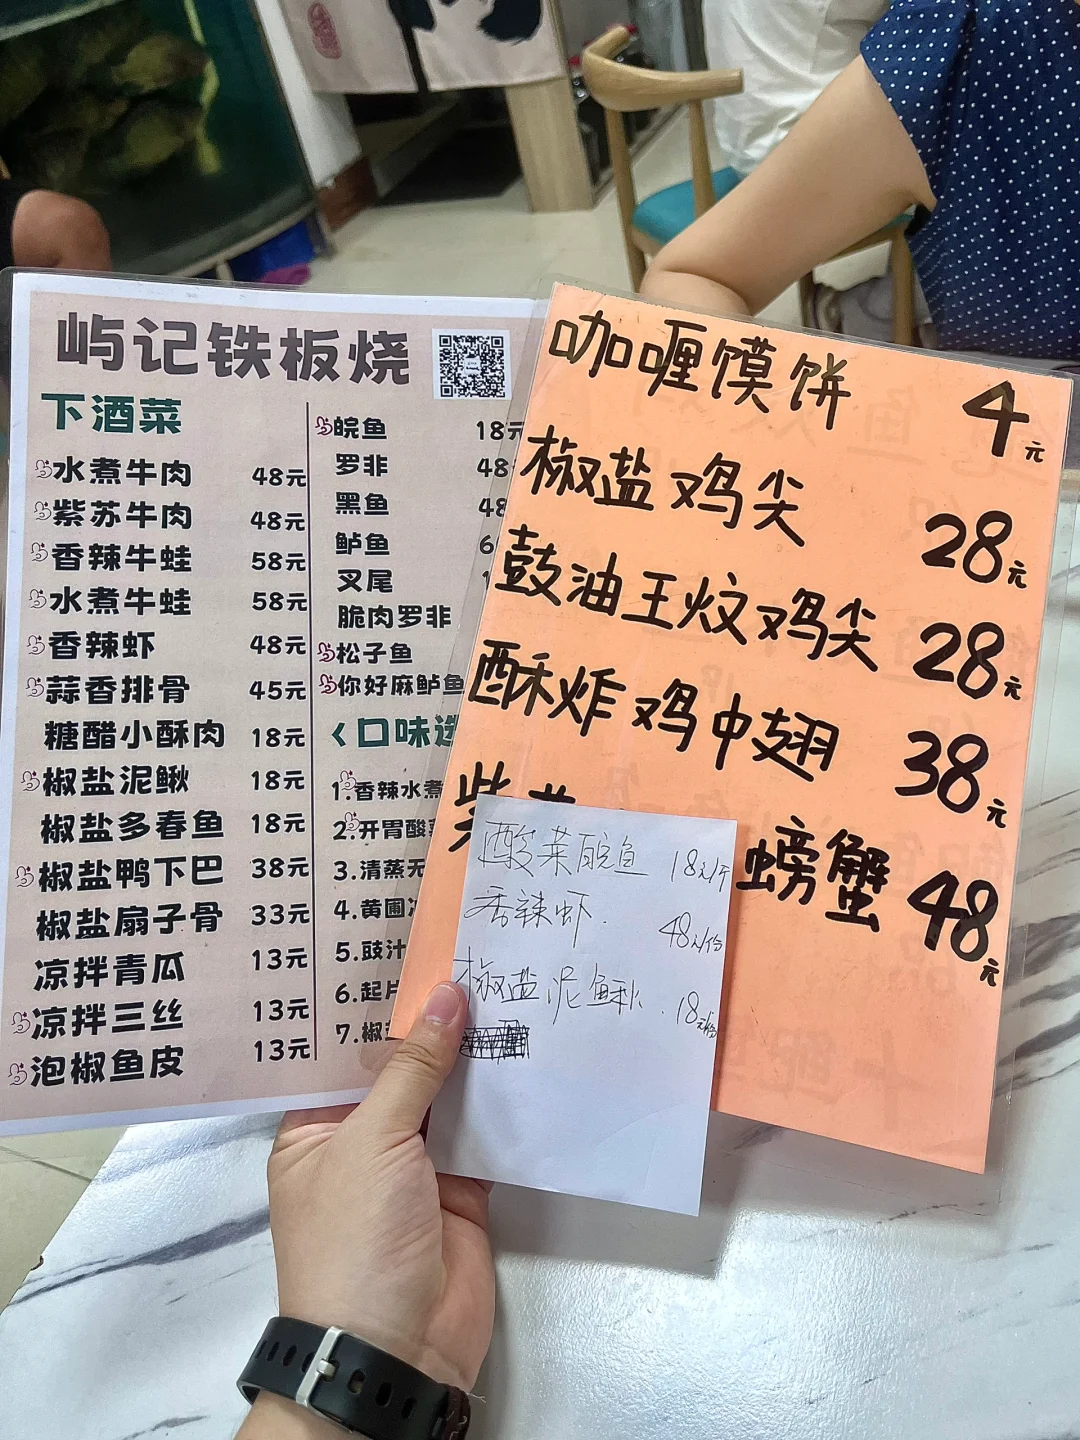 屿记铁板烧
下酒菜
水煮牛肉 48元
紫苏牛肉 48元
香辣牛蛙 58元
水煮牛蛙 58元
香辣虾 48元
蒜香排骨 45元
糖醋小酥肉 18元
椒盐泥鳅 18元
椒盐多春鱼 18元
椒盐鸭下巴 38元
椒盐扇子骨 33元
凉拌青瓜 13元
凉拌三丝 13元
泡椒鱼皮 13元
皖鱼 18元
罗非 48
黑鱼 48
鲈鱼 6
叉尾
脆肉罗非
松子鱼
你好麻鲈鱼
<口味选
1.香辣水煮
2.开胃酸
3.清蒸无
4.黄圃
5.豉汁
6.起片
7.椒盐
咖喱馍饼 4元
椒盐鸡尖 28元
鼓油王炆鸡尖 28元
酥炸鸡中翅 38元
紫 螃蟹 48元
酸菜皖鱼 18元/斤
香辣虾. 48元/份
椒盐泥鳅. 18元/份